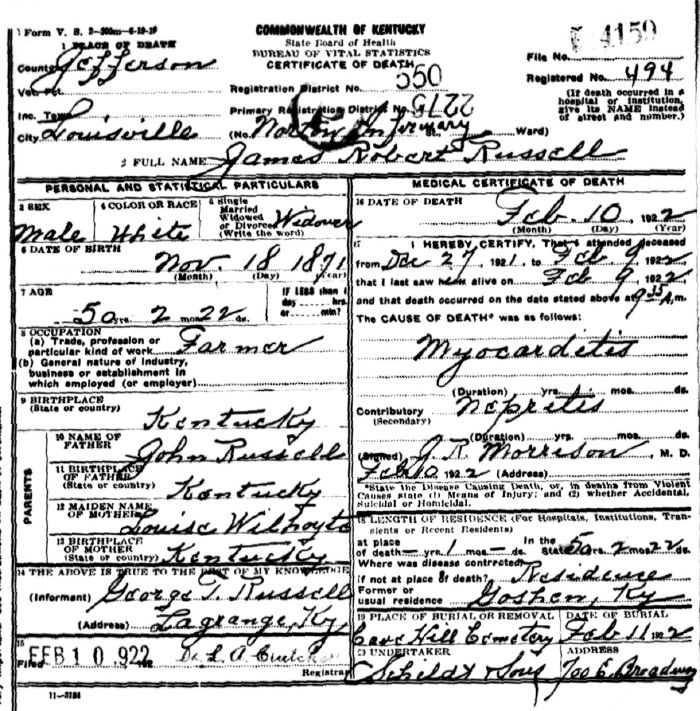 Form V. S. 2-300m-6-19-19
COMMONWEALTH OF KENTUCKY
State Board of Health
BUREAU OF VITAL STATISTICS
CERTIFICATE OF DEATH
4150
1 PLACE OF DEATH
County Jefferson
File No.
Registration District No. 550
Registered No. 494
Vot. Pct.
(If death occurred in a hospital or institution, give its NAME instead of street and number.)
Inc. Town
Primary Registration District No. 5122
City Louisville
(No. Norton Infirmary Ward)
2 FULL NAME James Robert Russell
PERSONAL AND STATISTICAL PARTICULARS
3 SEX Male
4 COLOR OR RACE White
5 Single Married Widowed or Divorced (Write the word) Widower
6 DATE OF BIRTH
Nov. 18 1871
(Month) (Day) (Year)
7 AGE
50 yrs. 2 mos. 22 ds.
IF LESS than 1 day hrs. or min?
8 OCCUPATION
(a) Trade, profession or particular kind of work Farmer
(b) General nature of industry, business or establishment in which employed (or employer)
9 BIRTHPLACE
(State or country) Kentucky
PARENTS
10 NAME OF FATHER John Russell
11 BIRTHPLACE OF FATHER
(State or country) Kentucky
12 MAIDEN NAME OF MOTHER Louise Wilhoyte
13 BIRTHPLACE OF MOTHER
(State or country) Kentucky
14 THE ABOVE IS TRUE TO THE BEST OF MY KNOWLEDGE
(Informant) George T. Russell
(Address) Lagrange, Ky,
15
Filed FEB 10 922 Dr. L. A.
Registrar
11-3184
MEDICAL CERTIFICATE OF DEATH
16 DATE OF DEATH
Feb. 10 1922
(Month) (Day) (Year)
17 I HEREBY CERTIFY, That I attended deceased
from Dec 27 1921, to Feb. 9, 1922
that I last saw him alive on Feb 9, 1922,
and that death occurred on the date stated above at 9 35 A.m.
The CAUSE OF DEATH* was as follows:
Myocarditis
(Duration) yrs. mos. ds.
Contributory Nepritis
(Secondary)
(Duration) yrs. mos. ds.
(Signed) J. R. Morrison M. D.
Feb 10 1922 (Address)
*State the Disease Causing Death, or, in deaths from Violent Causes state (1) Means of Injury; and (2) whether Accidental, Suicidal or Homicidal.
18 LENGTH OF RESIDENCE (For Hospitals, Institutions, Transients or Recent Residents)
at place of death — yrs. 1 mos. — ds. In the State 50 yrs. 2 mos. 22 ds.
Where was disease contracted if not at place of death? Residence
Former or usual residence Goshen, Ky
19 PLACE OF BURIAL OR REMOVAL
Cave Hill Cemetery
DATE OF BURIAL
Feb 11 1922
20 UNDERTAKER
Schildt & Sons
ADDRESS
700 E. Broadway